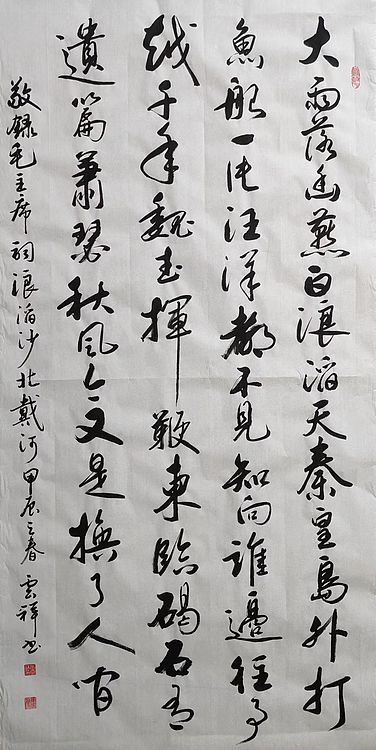 大雨落幽燕白浪滔天秦皇島外打
魚船一片汪洋都不見知向誰邊往事
越千年魏武揮鞭東臨碣石有
遺篇蕭瑟秋風今又是換了人間
敬錄毛主席詞浪滔沙北戴河甲辰之春雲祥书